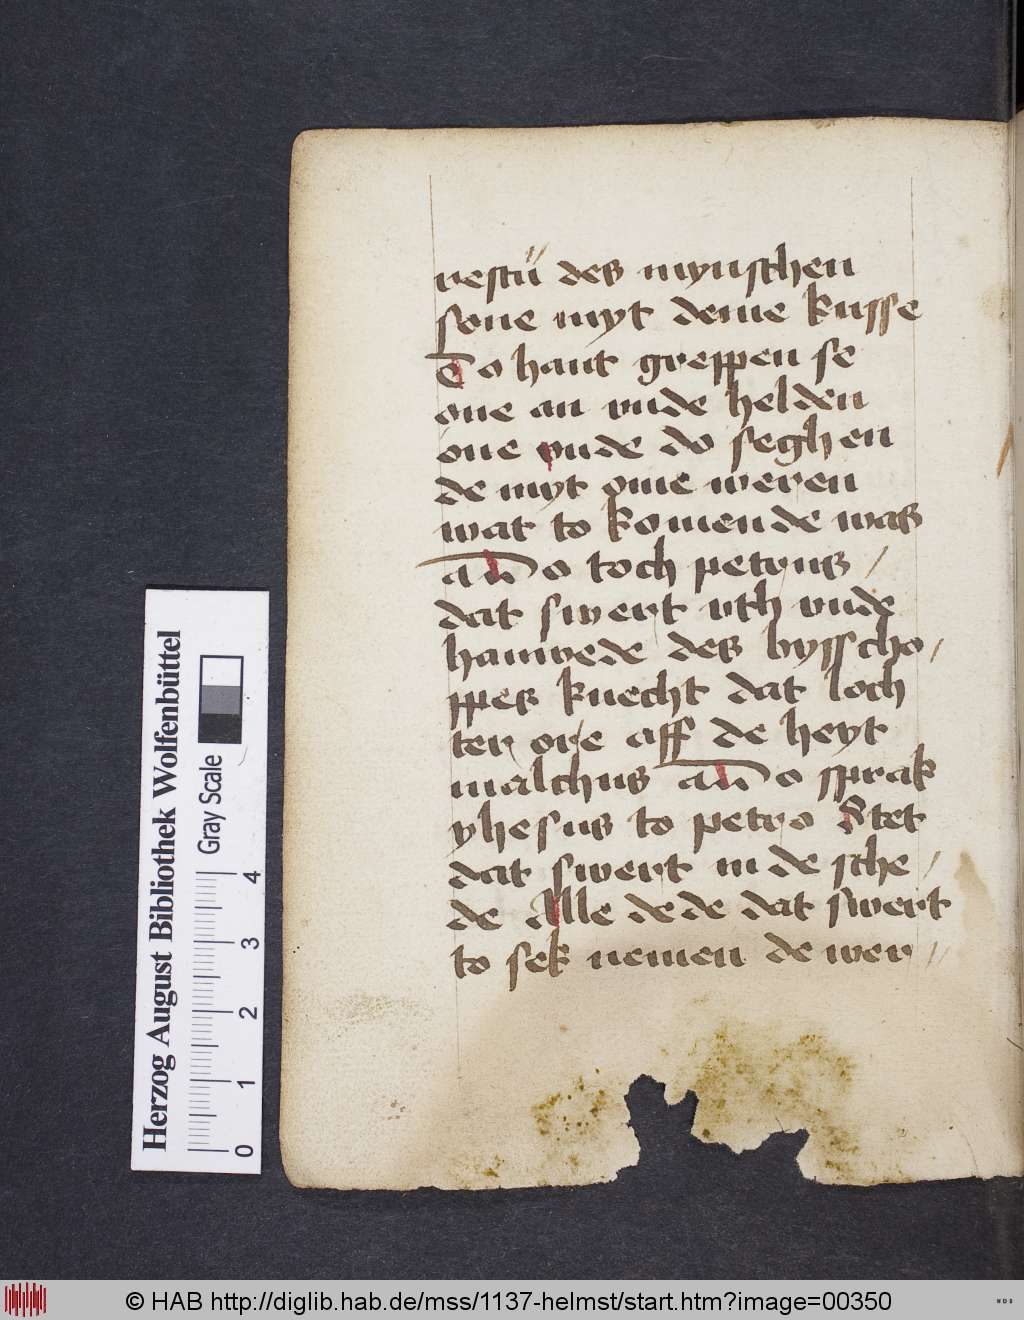 restu des mynschen
sone myt deme kusse
To hant greppen se
one an vnde helden
one vnde do seghen
de myt ome weren
wat to komende was
Do toch petrus /
dat swert vth vnde
hauwede des bysscho /
ppes knecht dat loch
ter ore aff de heyt
malchus Do sprak
yhesus to petro Stet
dat swert in de sche /
de Alle dede dat swert
to sek nemen de wer //
Herzog August Bibliothek Wolfenbüttel
Gray Scale
0 1 2 3 4
© HAB http://diglib.hab.de/mss/1137-helmst/start.htm?image=00350